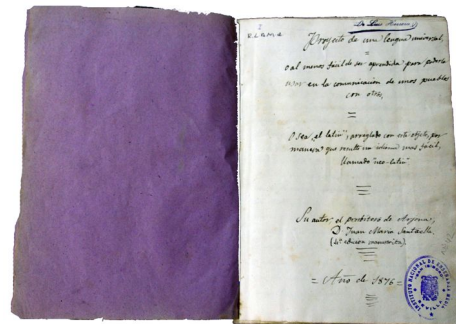 Proyecto de una lengua universal,
o al menos fácil de ser aprendida para poderla
usar en la comunicación de unos pueblos
con otros,
O sea, el latín, arreglado con este objeto, por
manera que resulte un idioma mas fácil,
llamado "neo-latin"
Su autor el presbítero de
D. Juan Maria
(4ª edicion manuscrita)
= Año de 1876 =
INSTITUTO NACIONAL DE